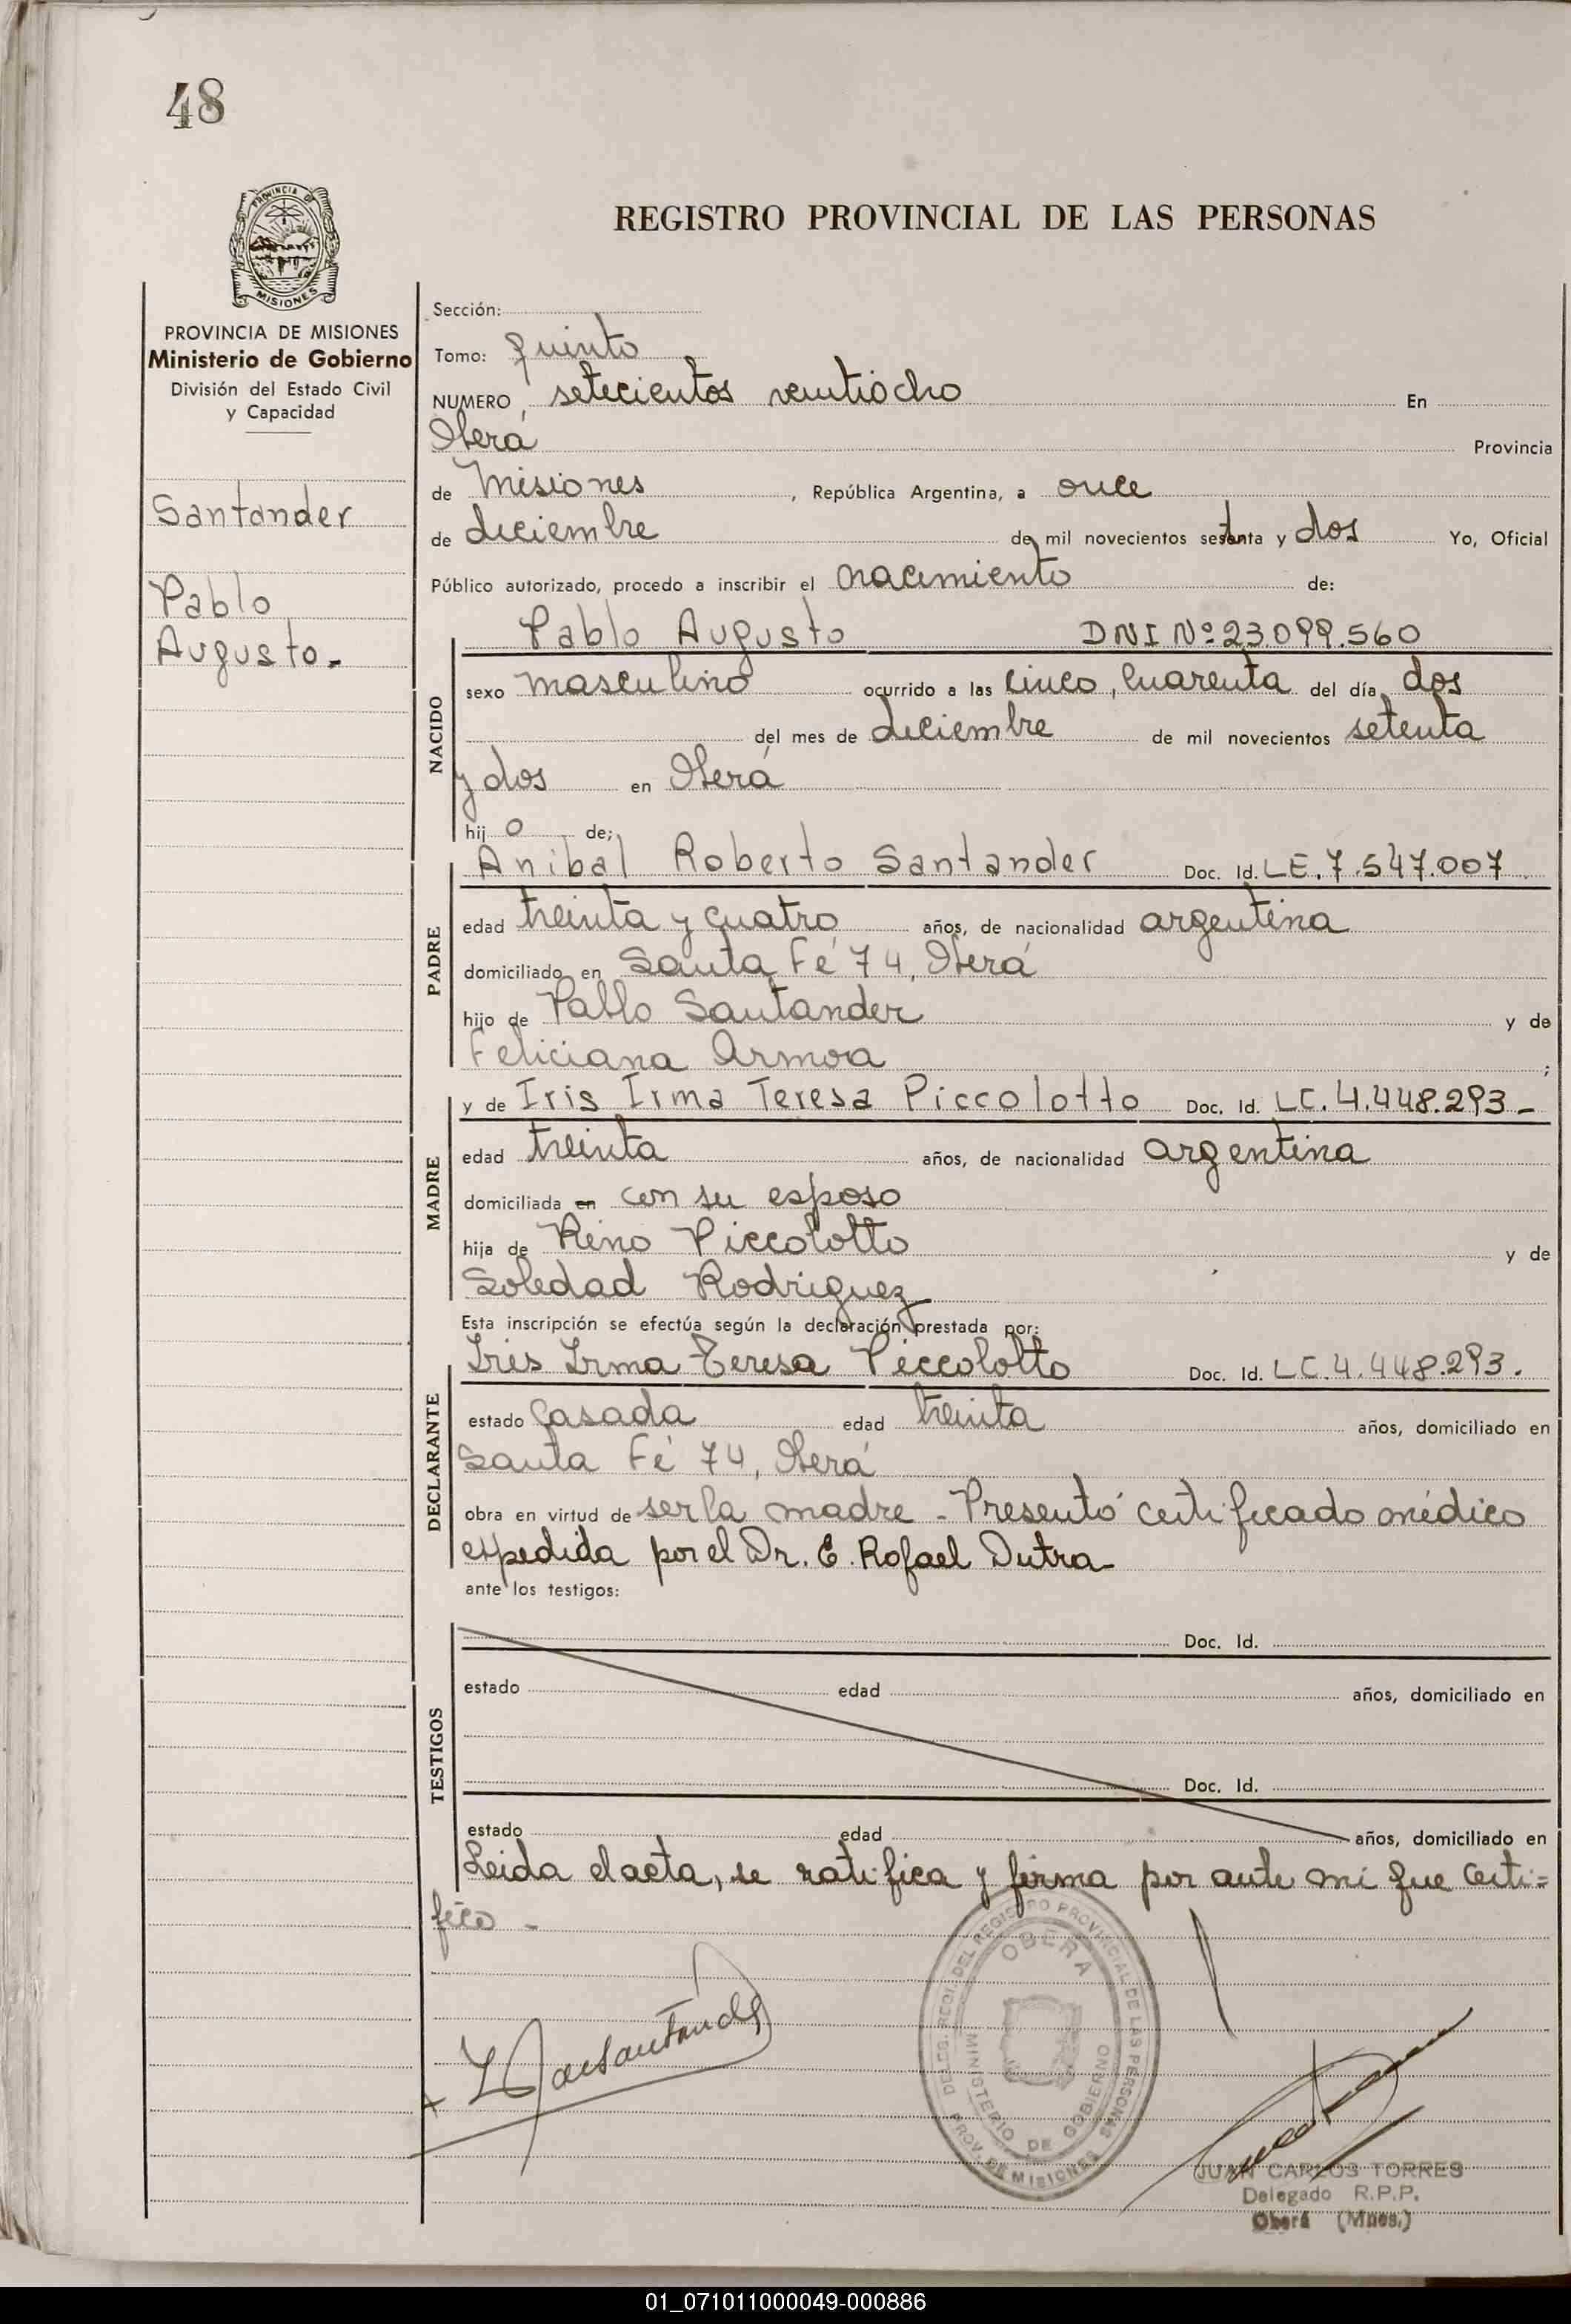 48
PROVINCIA DE
MISIONES
REGISTRO PROVINCIAL DE LAS PERSONAS
PROVINCIA DE MISIONES
Ministerio de Gobierno
División del Estado Civil
y Capacidad
Santander
Pablo
Augusto.
Sección:
Tomo: quinto
NUMERO setecientos veintiocho En
Oberá Provincia
de Misiones, República Argentina, a once
de deciembre de mil novecientos setenta y dos Yo, Oficial
Público autorizado, procedo a inscribir el nacimiento de:
NACIDO
Pablo Augusto DNI Nº 23.099.560
sexo masculino ocurrido a las cinco, cuarenta del día dos
del mes de deciembre de mil novecientos setenta
y dos en Oberá
hijo de;
PADRE
Anibal Roberto Santander Doc. Id. LE. 7.547.007
edad treinta y cuatro años, de nacionalidad argentina
domiciliado en Santa Fé 74, Oberá
hijo de Pablo Santander y de
Feliciana Armoa ;
MADRE
y de Iris Irma Teresa Piccolotto Doc. Id. LC. 4.448.293 -
edad treinta años, de nacionalidad argentina
domiciliada en con su esposo
hija de Reno Piccolotto y de
Soledad Rodriguez
Esta inscripción se efectúa según la declaración prestada por:
DECLARANTE
Iris Irma Teresa Piccolotto Doc. Id. LC. 4.448.293.
estado casada edad treinta años, domiciliado en
Santa Fé 74, Oberá
obra en virtud de ser la madre - Presentó certificado médico
expedida por el Dr. E. Rafael Dutra
ante los testigos:
TESTIGOS
Doc. Id.
estado edad años, domiciliado en
Doc. Id.
estado edad años, domiciliado en
Leida el acta, se ratifica y firma por ante mi que certi=
fico -
DELEG. REGI. DEL REGISTRO PROVINCIAL DE LAS PERSONAS
OBERA
MINISTERIO DE GOBIERNO
PROV. DE MISIONES
JUAN CARLOS TORRES
Delegado R.P.P.
Oberá (Mnes.)
01_071011000049-000886